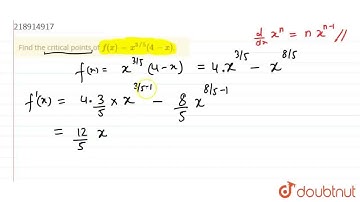 218914917
Find the critical points of f(x) = x^{3/5}(4 − x).
d/dx x^n = n x^{n-1} //
f(x) = x^{3/5} (4-x) = 4.x^{3/5} - x^{8/5}
f'(x) = 4.3/5 × x^{3/5-1} - 8/5 x^{8/5-1}
= 12/5 x
doubtnut